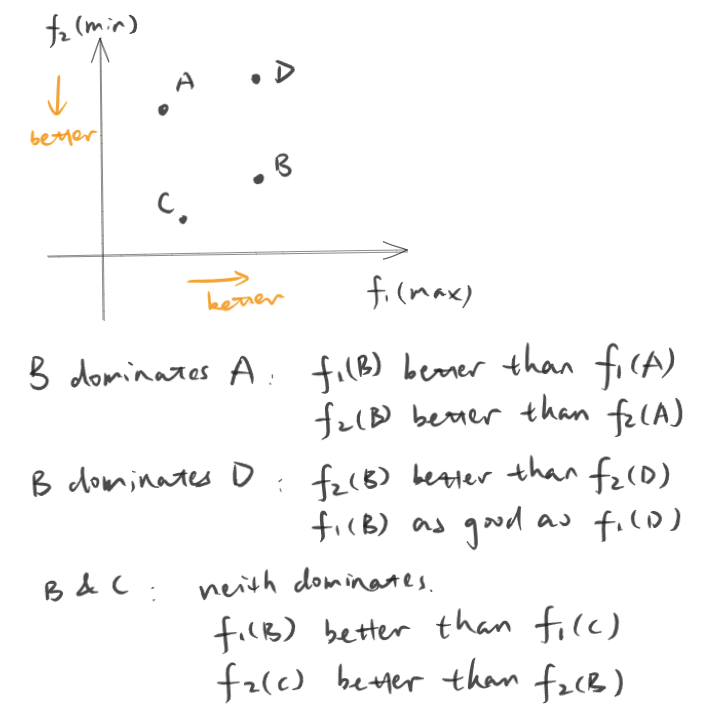 f₂(min)
better
A
D
B
C
better
f₁(max)
B dominates A: f₁(B) better than f₁(A)
f₂(B) better than f₂(A)
B dominates D: f₂(B) better than f₂(D)
f₁(B) as good as f₁(D)
B & C: neith dominates.
f₁(B) better than f₁(C)
f₂(C) better than f₂(B)